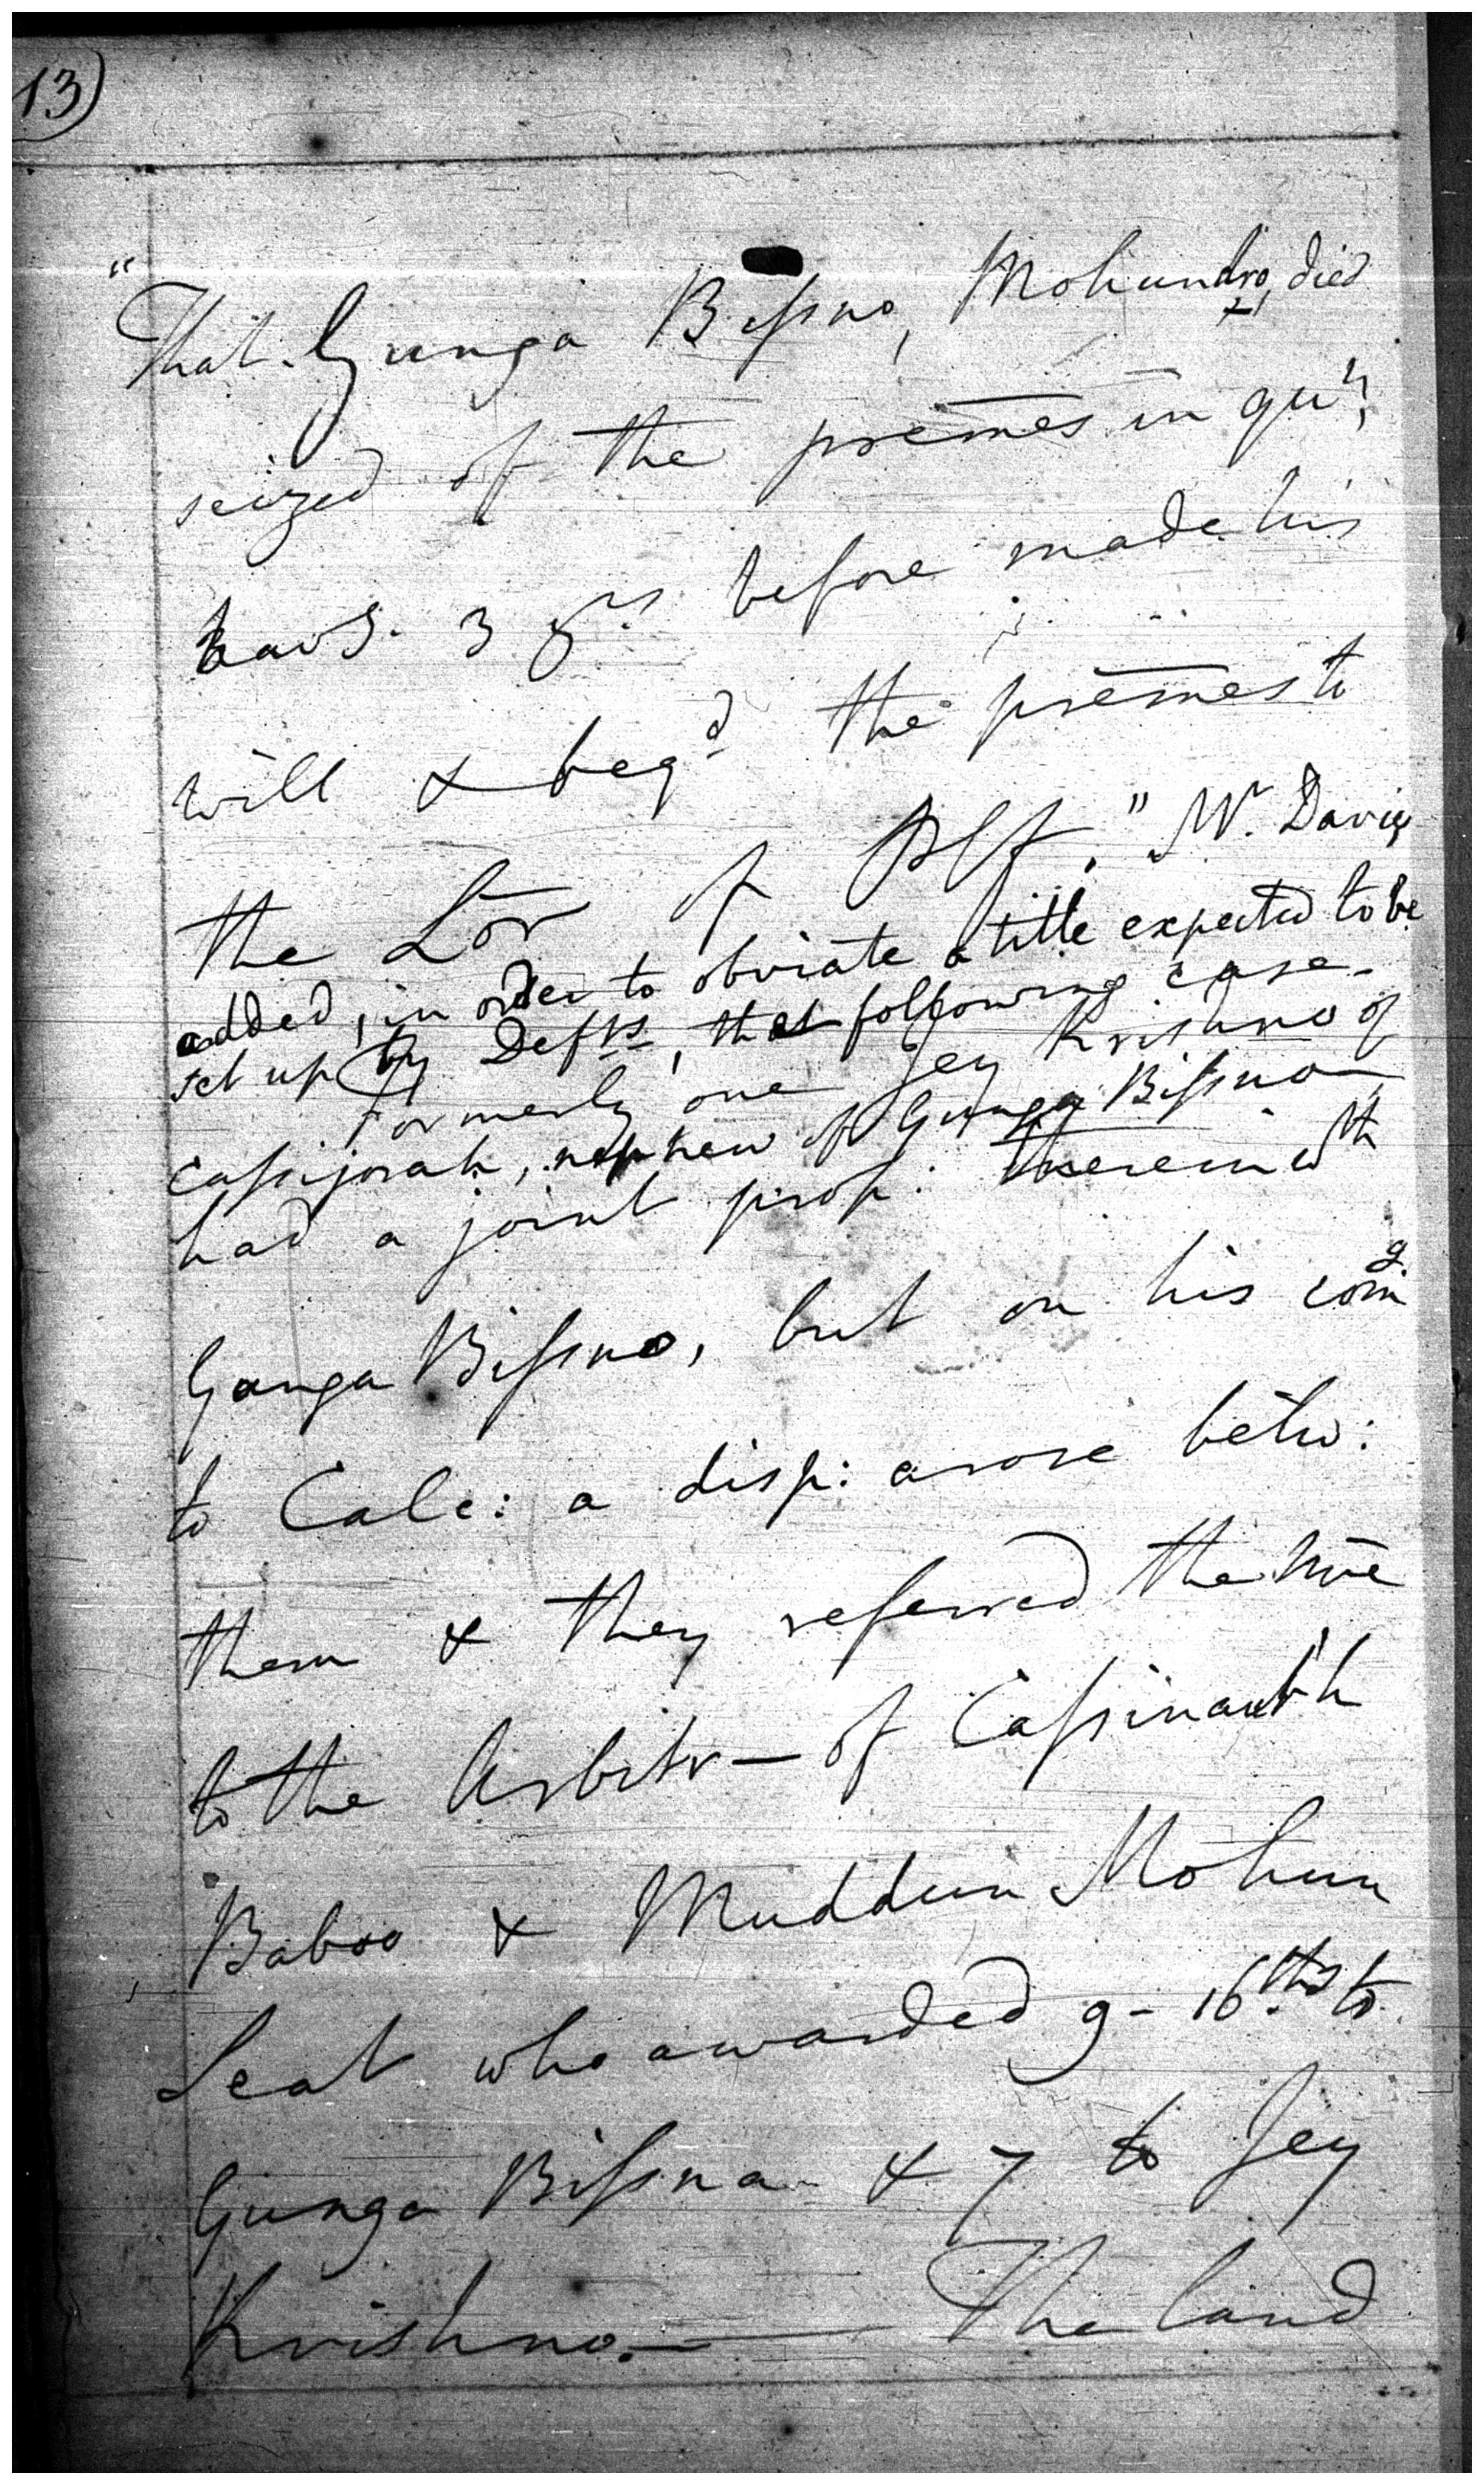 13)
"That Gunga Bissno, Mohundro, died
seized of the premēs in quⁿ,
havg. 3 yrs before made his
will & beqd the premēs to
the Lor of Plf." Mr. Davis
added, in order to obviate a title expected to be
set up by Defts, the following case.
Formerly one Jey Krishno of
Cassijorah, nephew of Gunga Bissno,
had a joint prop. therein wth
Gunga Bissno, but on his comg
to Calc: a disp: arose betw:
them & they referred the
to the Arbitr— of Cassinauth
Baboo & Muddun Mohun
Seat who awarded 9-16ths to
Gunga Bissna & 7 to Jey
Krishno.— The land